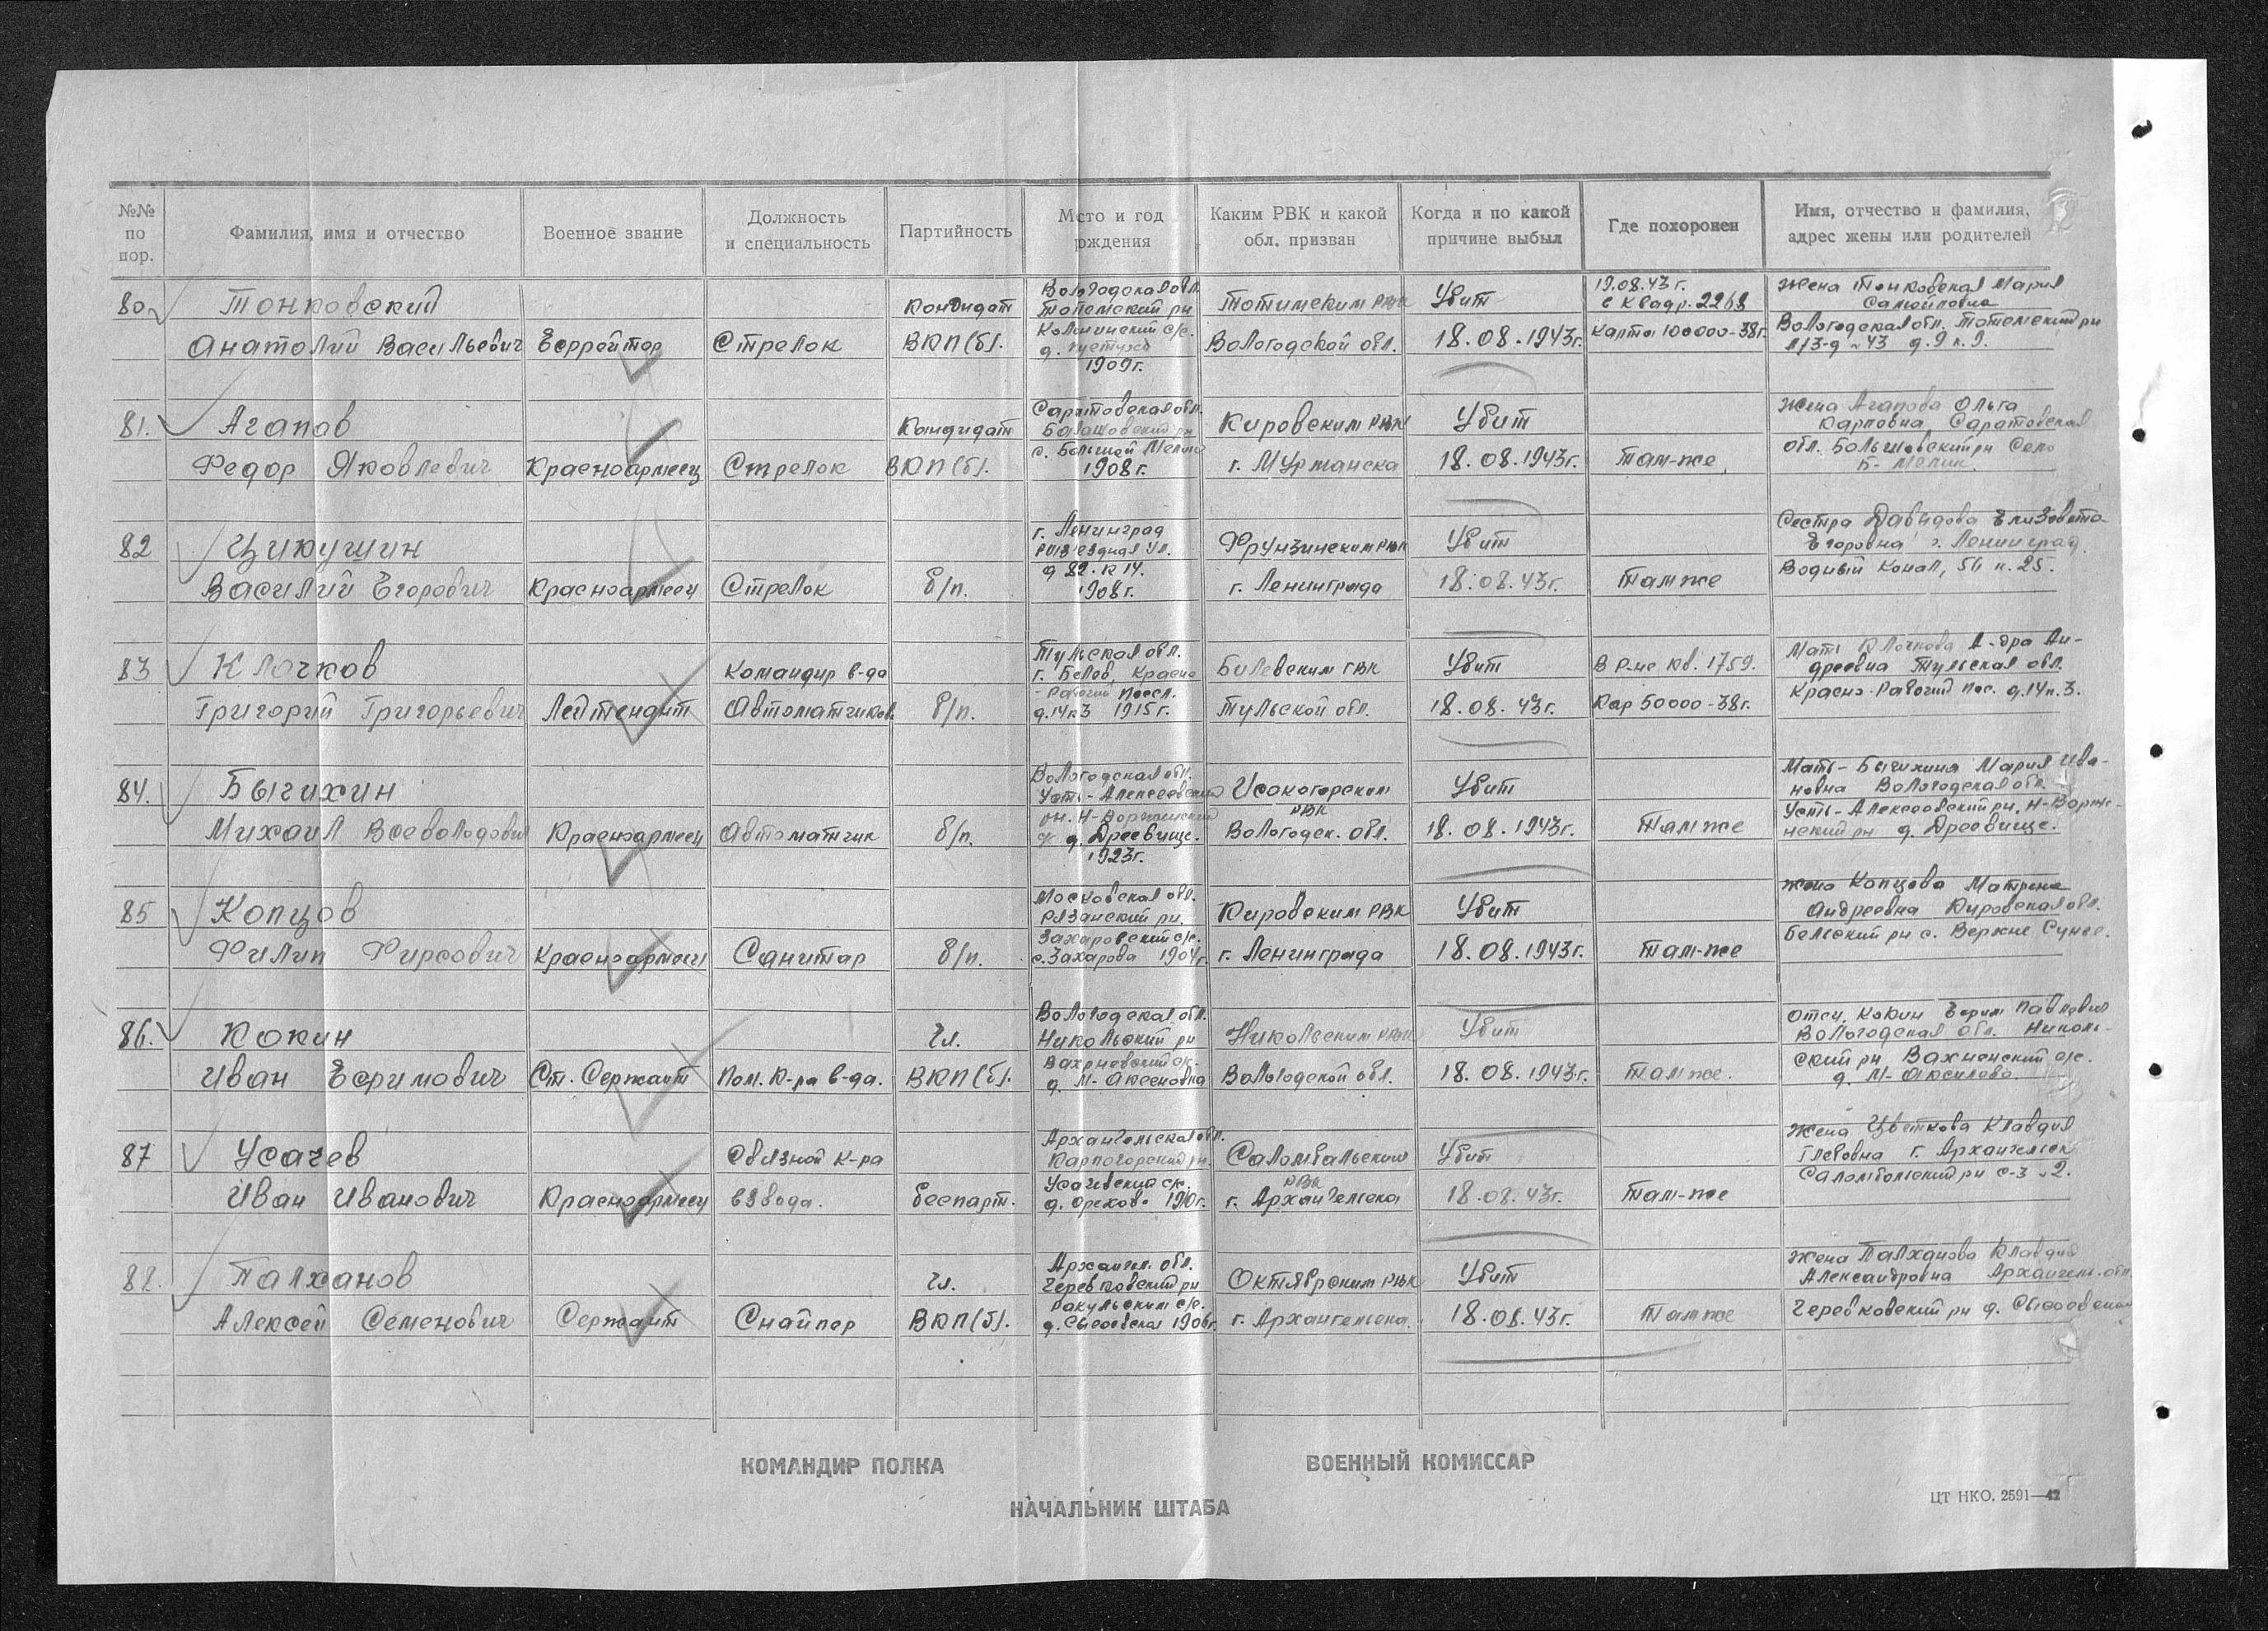 №№ по пор.
Фамилия, имя и отчество
Военное звание
Должность и специальность
Партийность
Место и год рждения
Каким РВК и какой обл. призван
Когда и по какой причине выбыл
Где похоронен
Имя, отчество и фамилия, адрес жены или родителей
80.
Тонковский
Анатолий Васильевич
Ефрейтор
Стрелок
Кандидат
ВКП(б).
Вологодская обл.
Тотемский рн
Калининский с/с.
д.
1909г.
Тотимским РВК
Вологодской обл.
Убит
18.08.1943г.
19.08.43 г.
с квадр. 2268
карта 100000-38г.
Жена Тонковская Мария
Самойловна
Вологодская обл. Тотемский рн
л/з-д 43 д.9 к.9.
81.
Агапов
Федор Яковлевич
Красноармеец
Стрелок
Кандидат
ВКП(б).
Саратовская обл.
Балашовский рн
с. Большой Мелик
1908г.
Кировским РВК
г. Мурманска
Убит
18.08.1943г.
Там-же
Жена Агапова Ольга
Карповна Саратовская
обл. Большовский рн село
Б-Мелик.
82
Цикушин
Василий Егорович
Красноармеец
Стрелок
б/п.
г. Ленинград
ул.
д 22. к 14.
1908г.
Фрунзинским РВК
г. Ленинграда
Убит
18.08.43г.
Там же
Сестра Давыдова Елизавета
Егоровна г. Ленинград.
Водный Конал, 56 к. 25.
83
Клочков
Григорий Григорьевич
Лейтенант
Командир в-да
Автоматчиков
б/п.
Тульская обл.
г. Белев, Красно
-Рабочий посел.
д.14к3 1915г.
Билевским ГВК
Тульской обл.
Убит
18.08.43г.
В р-не кв. 1759.
Кар 50000-38г.
Мать Клочкова А-дра Ан-
дреевна Тульская обл.
Красно-Рабочий пос. д.14к.3.
84.
Быгихин
Михаил Всеволодович
Красноармеец
Автоматчик
б/п.
Вологодская обл.
Усть-Алексеевский
рн. Н-Воржинский
с/с д. Дресвище.
1923г.
Исокогорским
РВК
Вологодск. обл.
Убит
18.08.1943г.
Там же
Мать-Быгихина Мария Ива-
новна Вологодская обл.
Усть-Алексеевский рн, Н-Воржи-
нский рн д. Дресвище.
85
Копцов
Филип Фирсович
Красноармеец
Санитар
б/п.
Московская обл.
Рязанский рн.
Захаровский с/с.
с.Захарова 1904г.
Кировским РВК
г. Ленинграда
Убит
18.08.1943г.
Там-же
Жена Копцова Матрена
Андреевна Кировская обл.
Бельский рн с. Верхне
86.
Кокин
Иван Ефимович
Ст. Сержант
Пом. К-ра в-да.
Чл.
ВКП(б).
Вологодская обл.
Никольский рн
Вахневский с/с.
д. М-Аксеновка
Никольским РВК
Вологодской обл.
Убит
18.08.1943г.
Там же.
Отец. Кокин Ефим Павлович
Вологодская обл. Николь-
ский рн Вахненский с/с.
д. М-Аксилево.
87
Усачев
Иван Иванович
Красноармеец
Связной к-ра
взвода.
беспарт.
Архангельская обл.
Карпогорский рн.
Усачевский с/с.
д. Орехово 1910г.
Саломбальским
РВК
г. Архангельска
Убит
18.08.43г.
Там-же
Жена Цветкова Клавдия
Глебовна г. Архангельск
Саломбальский рн с-з 2.
88.
Палханов
Алексей Семенович
Сержант
Снайпер
Чл.
ВКП(б).
Архангел. обл.
Черевковский рн
Ракульским с/с.
1906г.
Октябрским РВК
г. Архангельска.
Убит
18.08.43г.
Там же
Жена Палханова Клавдия
Александровна Архангель. обл.
Черевковский рн д.
КОМАНДИР ПОЛКА
ВОЕННЫЙ КОМИССАР
НАЧАЛЬНИК ШТАБА
ЦТ НКО. 2591—42